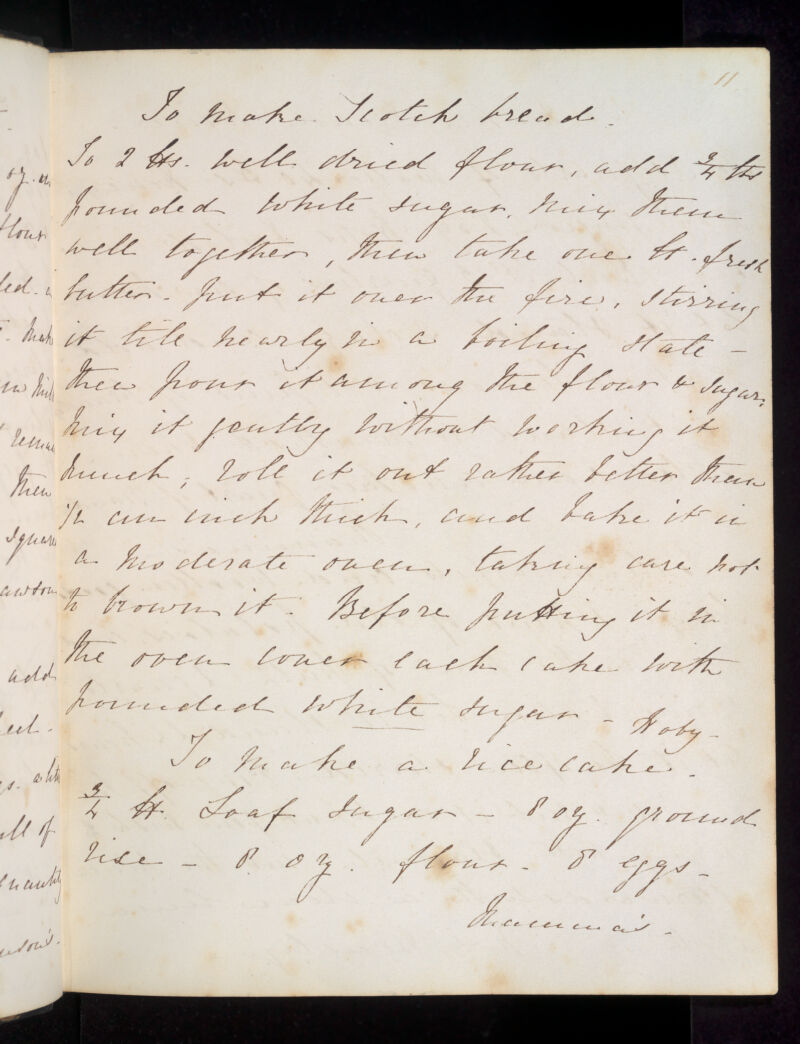 11
To make Scotch bread.
To 2 lbs. well dried flour, add 3/4 lb
pounded white sugar, mix them
well together, then take one lb. fresh
butter. put it over the fire, stirring
it till nearly in a boiling state -
then pour it among the flour & sugar,
mix it gently without working it
much, roll it out rather better than
1/2 an inch thick, and bake it in
a moderate oven, taking care not
to brown it. Before putting it in
the oven cover each cake with
pounded white sugar -
To make a rice cake.
3/4 lb Loaf sugar - 8 oz. ground
rice - 8. oz. flour - 8 eggs -
Mamma's.
oz.
flour
then
square
add
all of
quantity